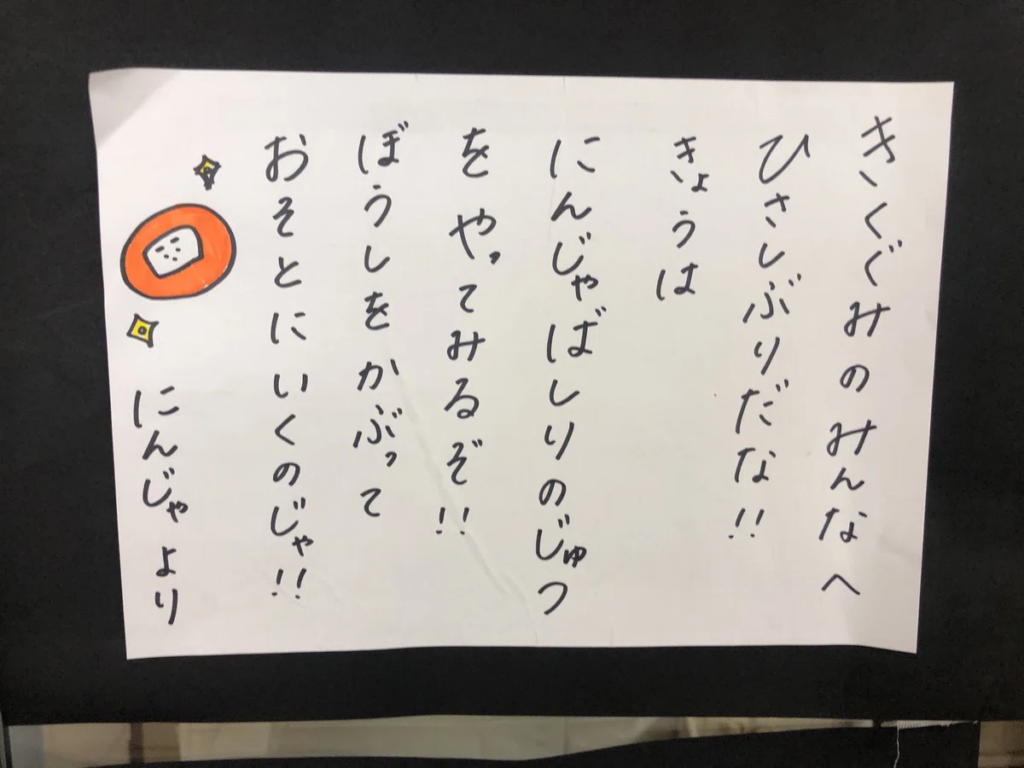 きくぐみのみんなへ
ひさしぶりだな!!
きょうは
にんじゃばしりのじゅつ
をやってみるぞ!!
ぼうしをかぶって
おそとにいくのじゃ!!
にんじゃより